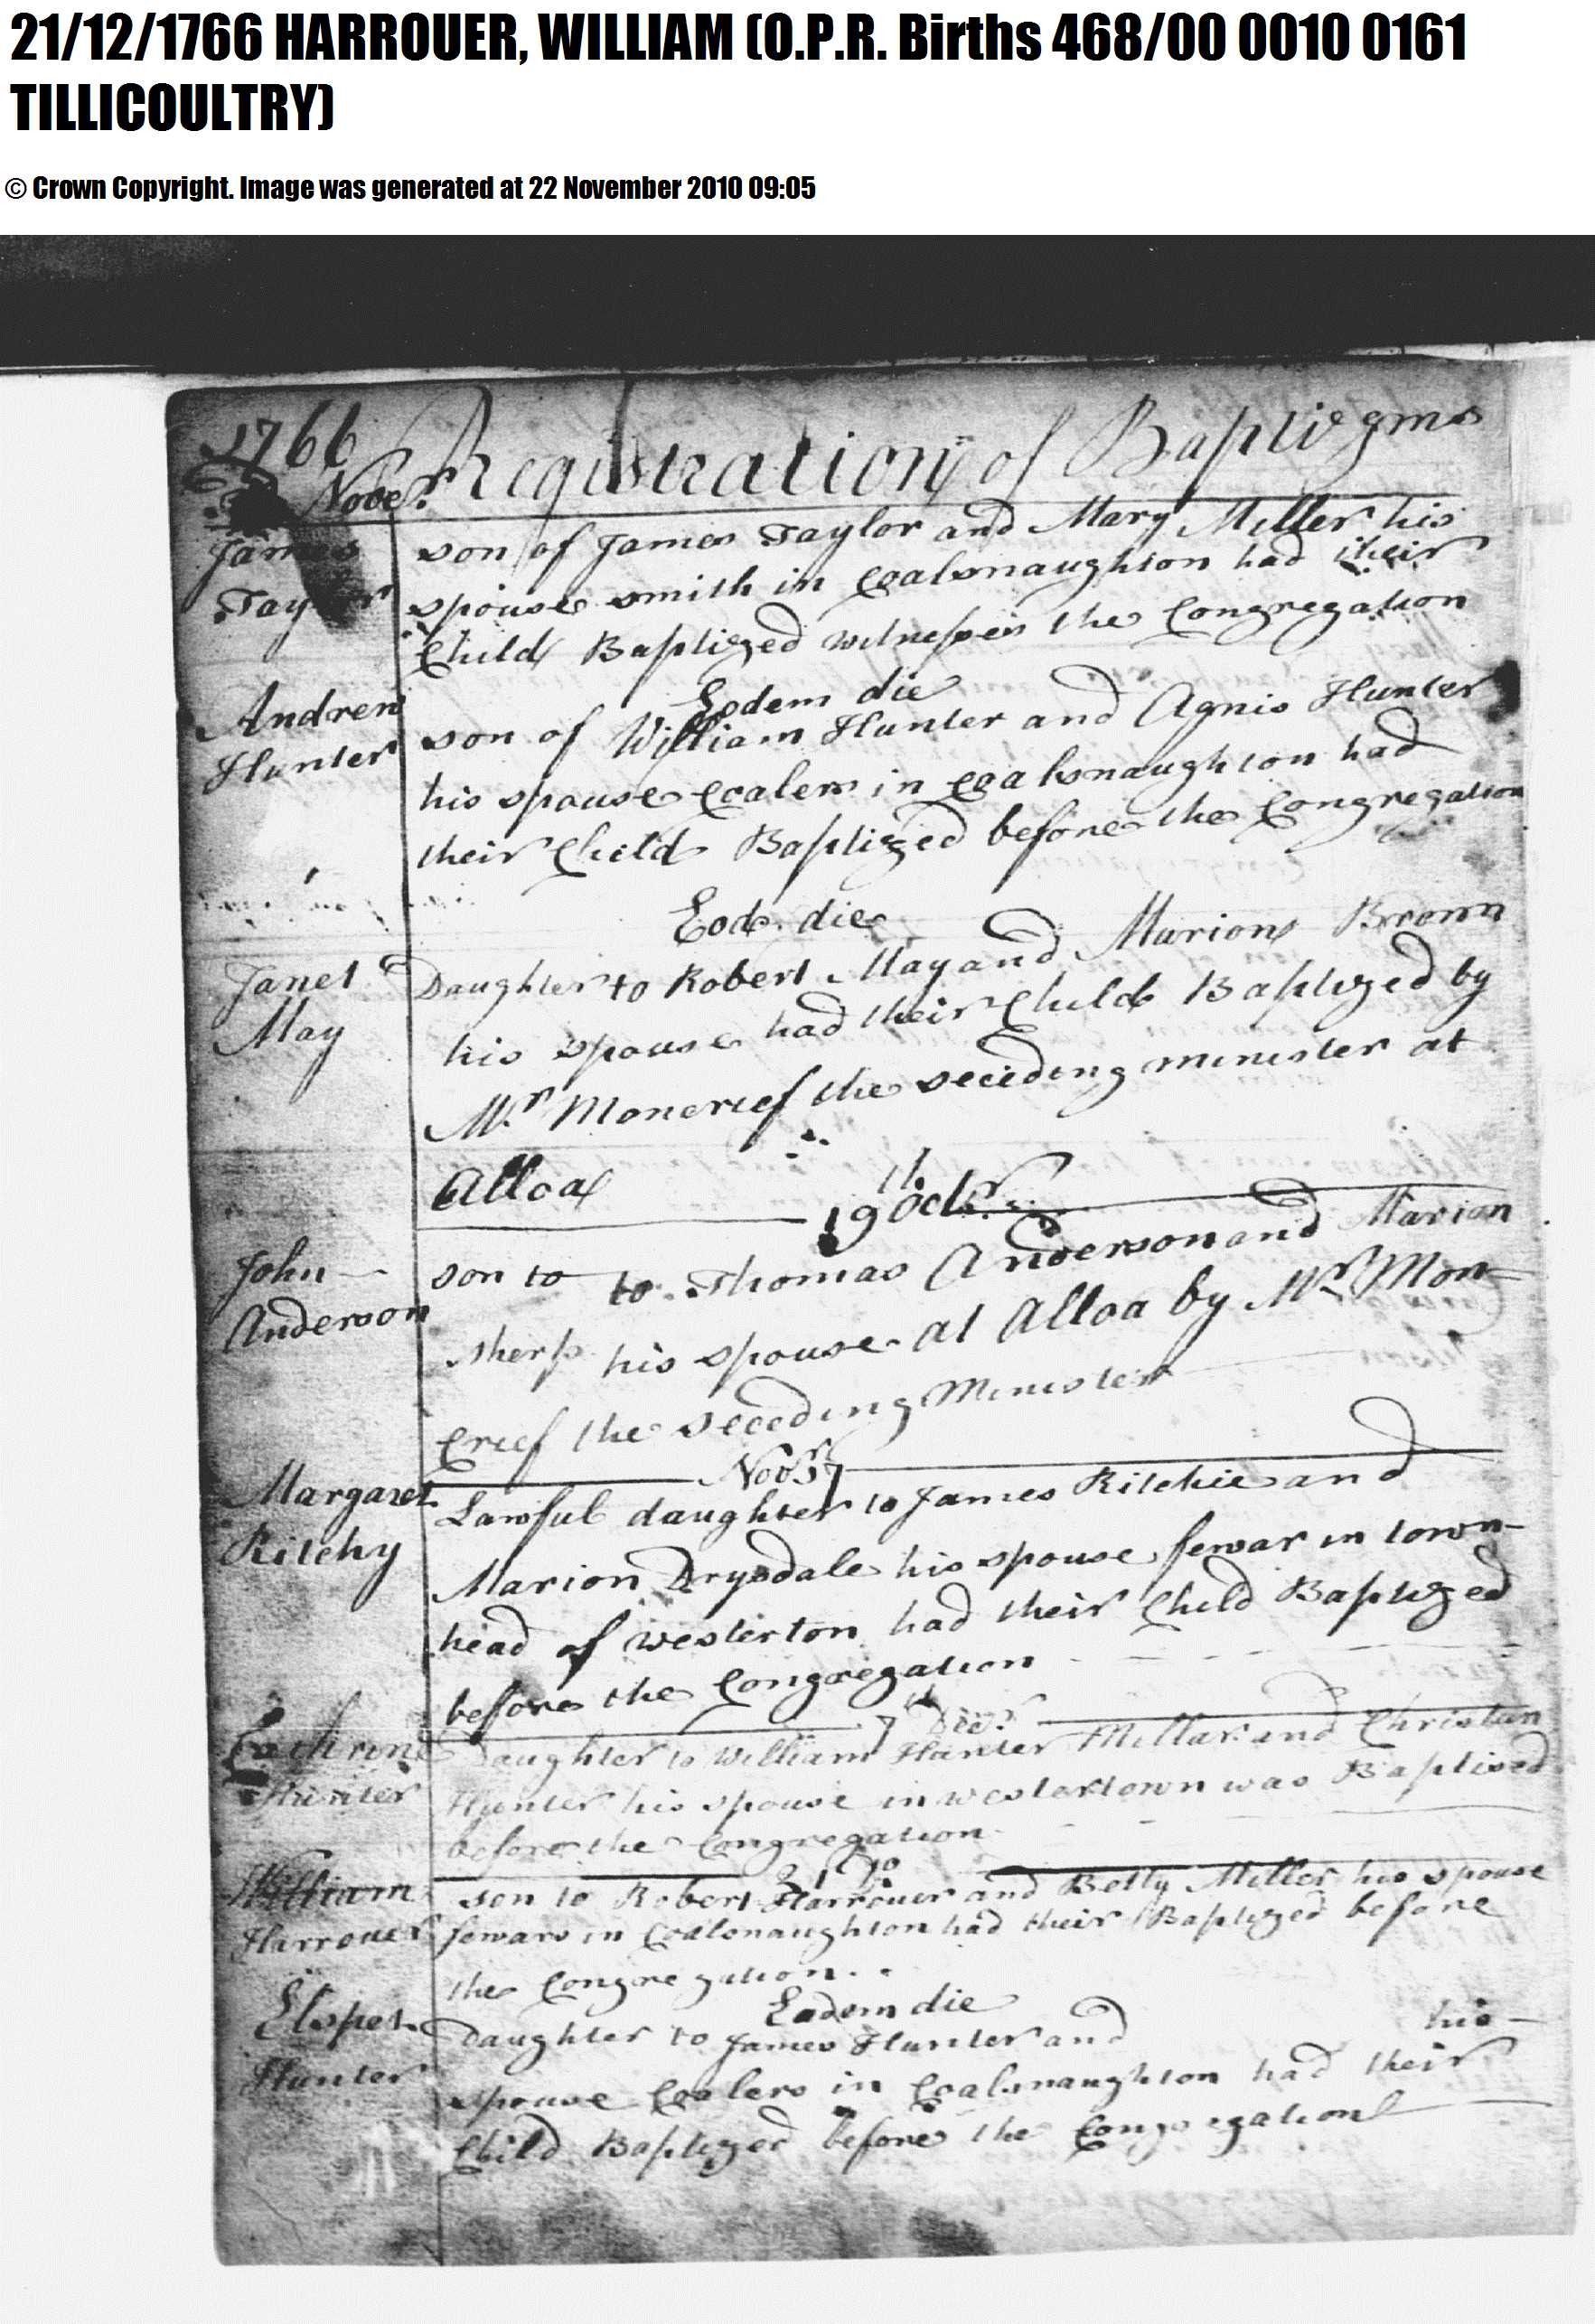 21/12/1766 HARROUER, WILLIAM (O.P.R. Births 468/00 0010 0161
TILLICOULTRY)
© Crown Copyright. Image was generated at 22 November 2010 09:05
1766 Registration of Baptizms
Nober.
James
Taylor
son of James Taylor and Mary Miller his
spouse smith in Coalsnaughton had their
Child Baptized witnesses the Congregation
Eodem die
Andrew
Hunter
son of William Hunter and Agnis Hunter
his spouse Coalers in Coalsnaughton had
their Child Baptized before the Congregation
Eod. die
Janet
May
Daughter to Robert May and Marion Brown
his spouse had their Child Baptized by
Mr. Moncrief the seceding minister at
Alloa
19th Octr.
John
Anderson
son to to Thomas Anderson and Marion
sherp his spouse at Alloa by Mr. Mon-
crief the seceding Minister
Novr. 7
Margaret
Ritchy
Lawful daughter to James Ritchie and
Marion Drysdale his spouse fewar in town-
head of westerton had their Child Baptized
before the Congregation
7th Decr.
Hunter
Daughter to William Hunter Millar and Christian
Hunter his spouse in westertown was Baptised
before the Congregation
21 do
William
Harrouer
son to Robert Harrouer and Betty Miller his spouse
fewars in Coalsnaughton had their Baptized before
the Congregation.
Eadem die
Elspet
Hunter
Daughter to James Hunter and his
spouse Coalers in Coalsnaughton had their
Child Baptized before the Congregation